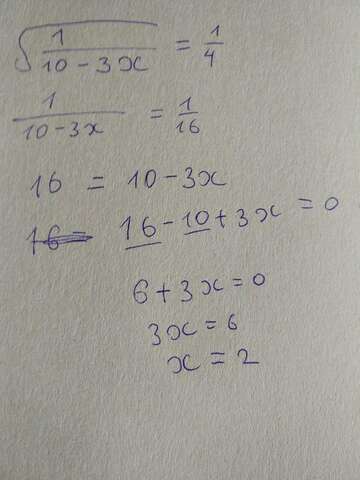 √(1/(10-3x)) = 1/4
1/(10-3x) = 1/16
16 = 10-3x
16 = 16-10+3x = 0
6+3x=0
3x=6
x=2